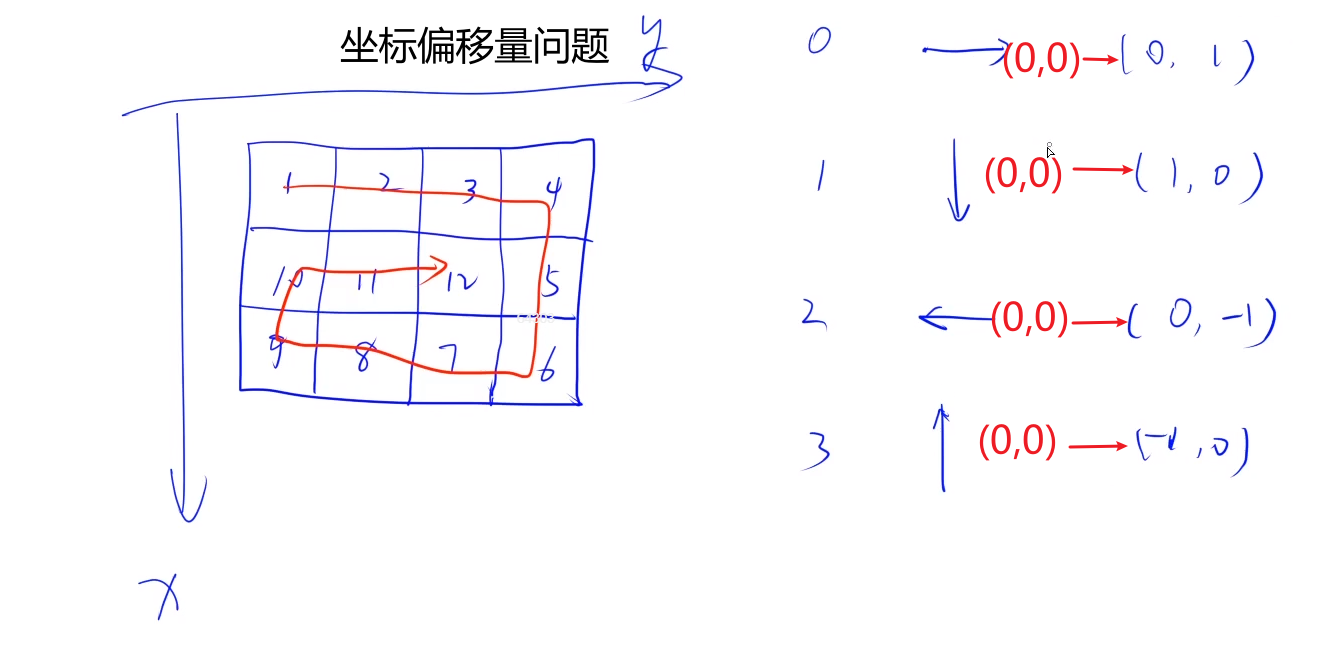 坐标偏移量问题 y
1 2 3 4
10 11 12 5
9 8 7 6
x
0 (0,0) (0, 1)
1 (0,0) (1, 0)
2 (0,0) (0, -1)
3 (0,0) (-1, 0)